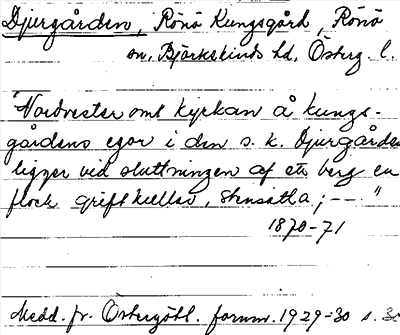 Djurgården, Rönö Kungsgård, Rönö
sn, Björkekinds hd, Österg. l.
"Nordvester omt kyrkan å kungs-
gårdens egor i den s. k. Djurgården
ligger ved sluttningen af ett berg en
flock grifthullar, stensatta; -- "
1870-71
Medd. fr. Östergötl. fornm. 1929-30 s. 30